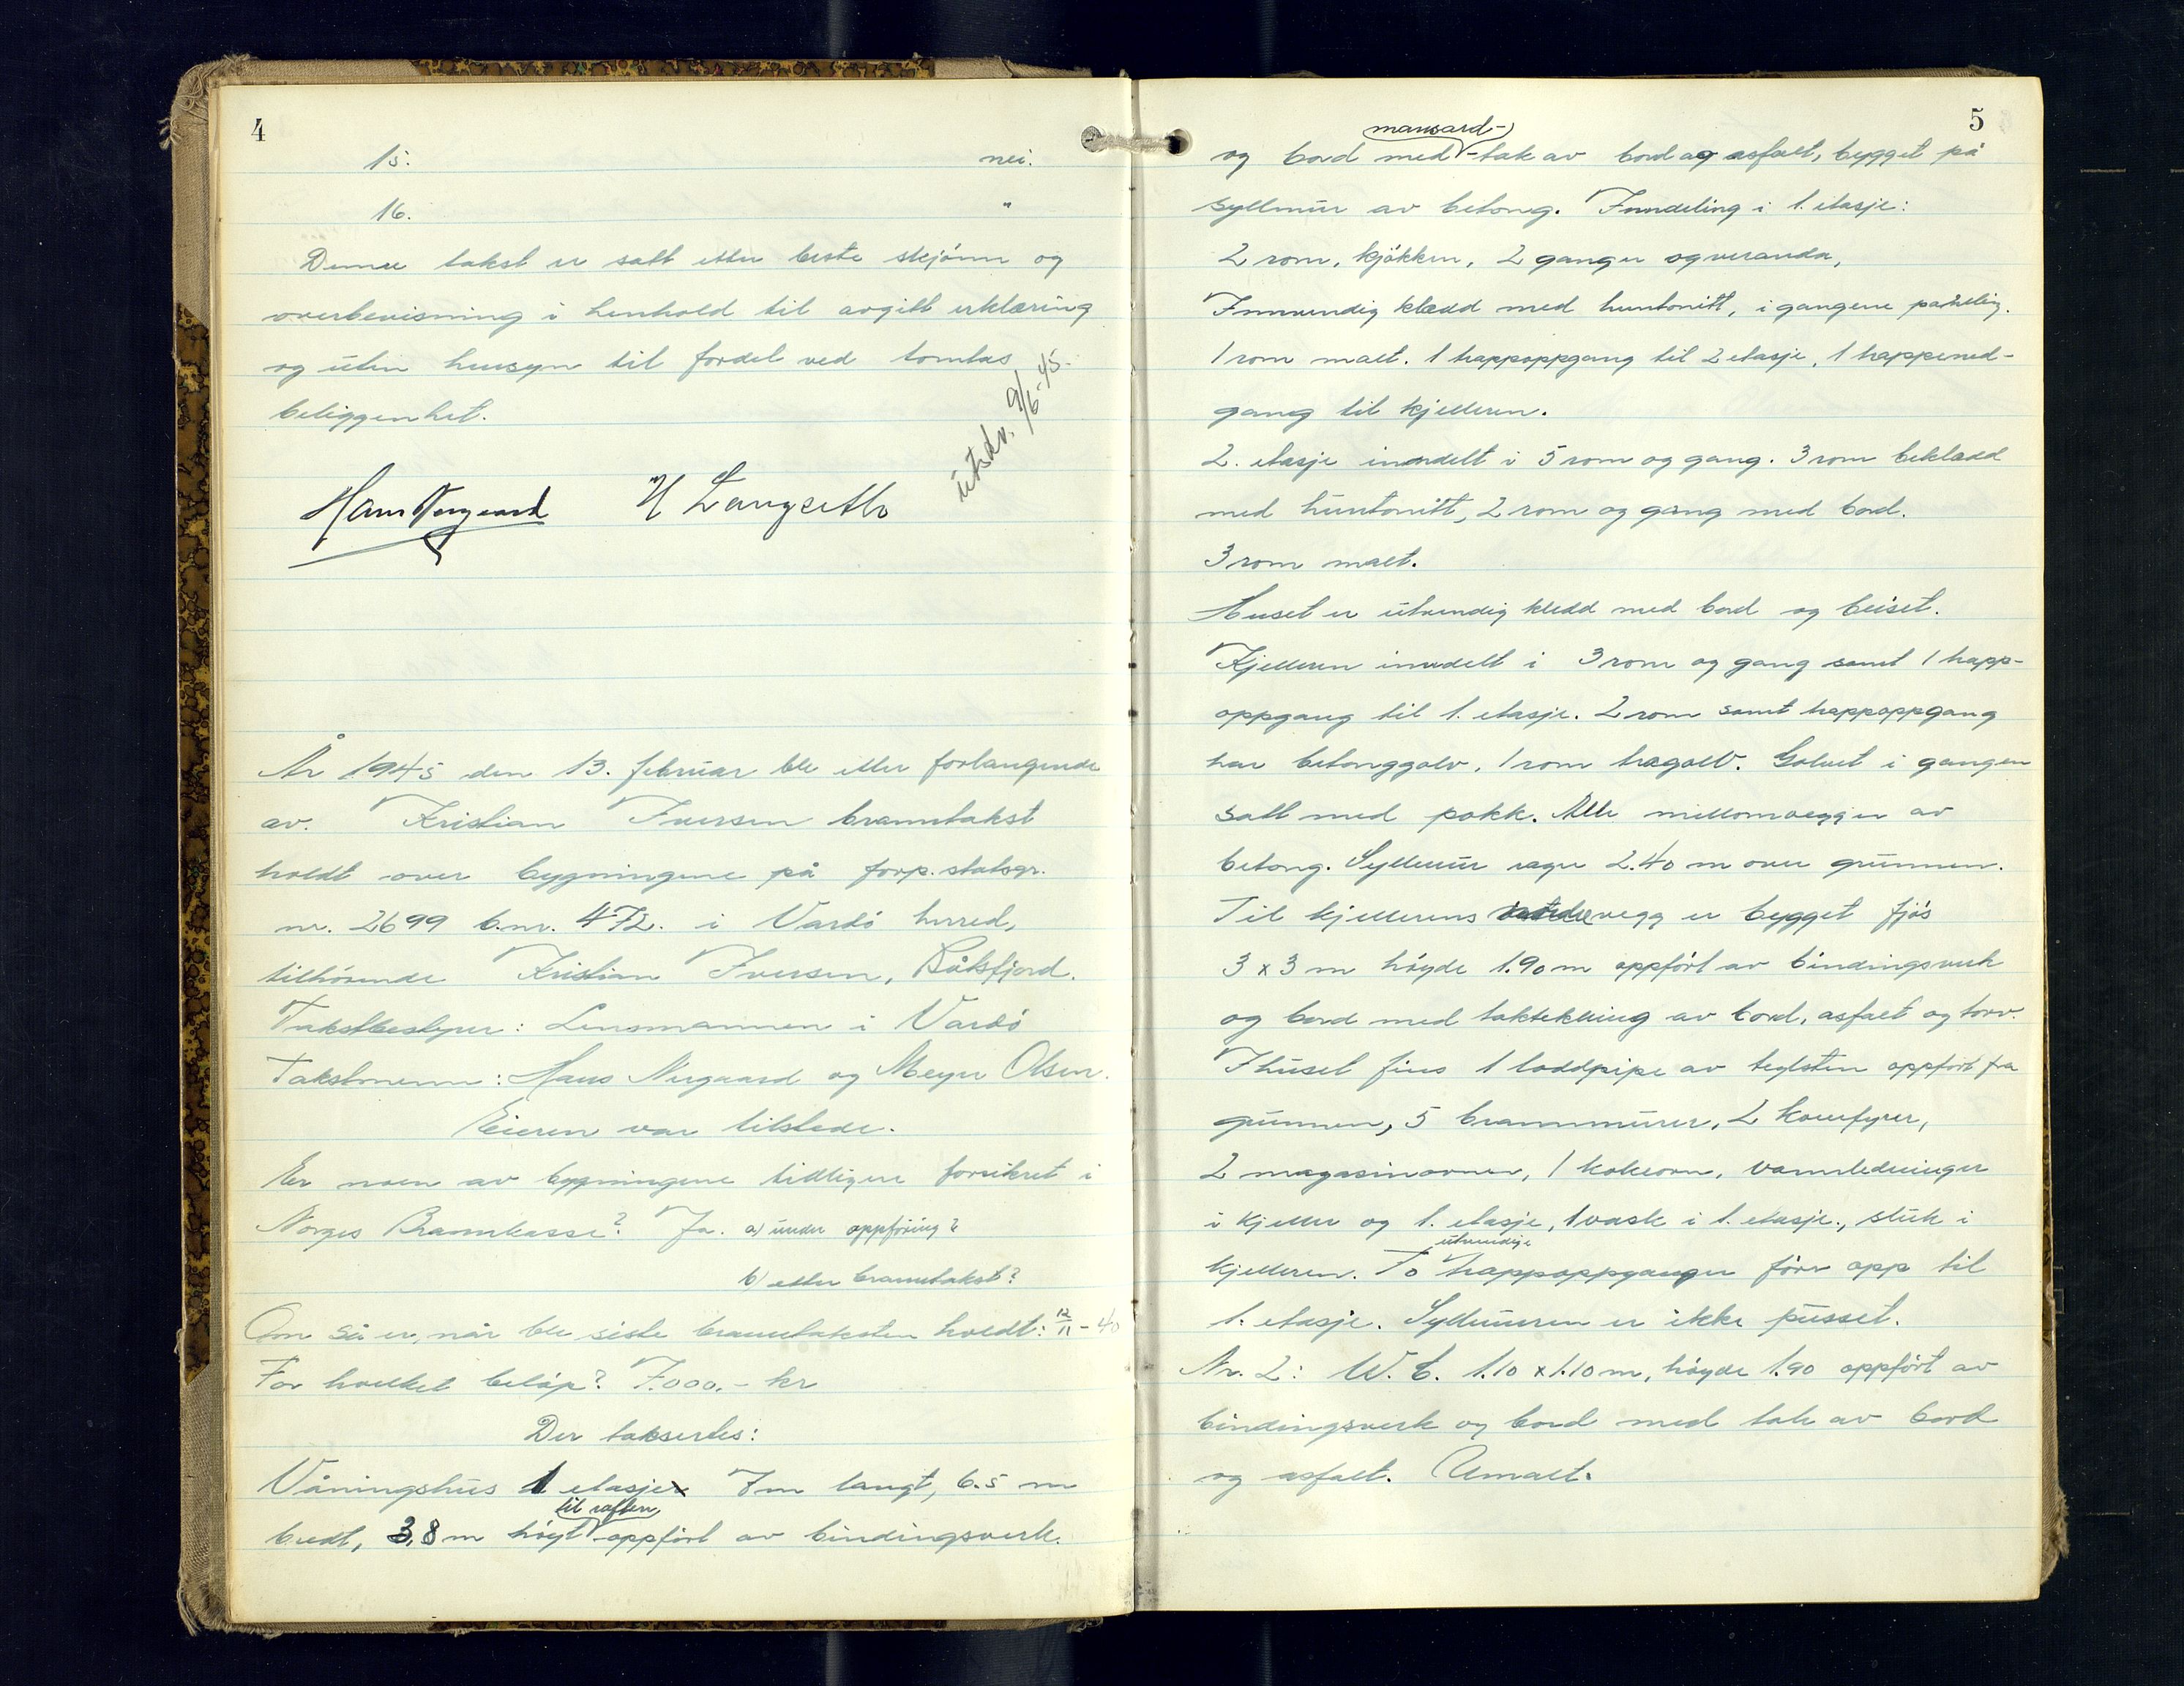 4
15. nei.
16. "
Denne takst er satt etter beste skjønn og
overbevisning i henhold til avgitt erklæring
og uten hensyn til fordel ved tomtas
beliggenhet.
utskr. 9/6-45.
Hans Norgaard H Langseth
År 1945 den 13. februar ble etter forlangende
av. Kristian Iversen branntakst
holdt over bygningene på forp. statsgr.
nr. 2699 b.nr. 472. i Vardö herred,
tilhörende Kristian Iversen, Båtsfjord.
Takstbestyrer: Lensmannen i Vardö
Takstmenn: Hans Nergaard og Meyer Olsen.
Eieren var tilstede.
Er noen av bygningene tidligere forsikret i
Norges Brannkasse? Ja. a) under oppföring?
b) etter branntakst?
Om så er, når ble siste branntaksten holdt: 12/11-40
For hvilket belöp? 7.000.- kr
Der taksertes:
Våningshus 1 etasje 7m langt, 6.5 m
til raften
bredt, 3,8 m höyt oppfört av bindingsverk.
5
mansard-
og bord med -tak av bord og asfalt, bygget på
syllmur av betong. Inndeling i 1. etasje:
2 rom, kjökken, 2 ganger og veranda,
Innvendig kledd med huntonitt, i gangene paneling.
1 rom malt. 1 trappoppgang til 2 etasje, 1 trappened-
gang til kjelleren.
2. etasje inndelt i 5 rom og gang. 3 rom bekledd
med huntonitt, 2 rom og gang med bord.
3 rom malt.
Huset er utvendig kledd med bord og beiset.
Kjelleren inndelt i 3 rom og gang samt 1 trapp-
oppgang til 1. etasje. 2 rom samt trappoppgang
har betonggolv, 1 rom tregolv. Golvet i gangen
satt med pokk. Alle mellomvegger av
betong. Syllmur rager 2.40 m over grunnen.
Til kjellerens vegg er bygget fjös
3 x 3 m höyde 1.90 m oppfört av bindingsverk
og bord med taktekking av bord, asfalt og torv.
I huset fins 1 loddpipe av teglsten oppfört fra
grunnen, 5 brannmurer, 2 komfyrer,
2 magasinovner, 1 kokeovn, vannledninger
i kjeller og 1. etasje, 1 vask i 1. etasje., sluk i
utvendige
kjelleren. To trappoppganger förer opp til
1. etasje. Syllmuren er ikke pusset.
Nr. 2: W.C. 1.10 x 1.10 m, höyde 1.90 oppfört av
bindingsverk og bord med tak av bord
og asfalt. Umalt.